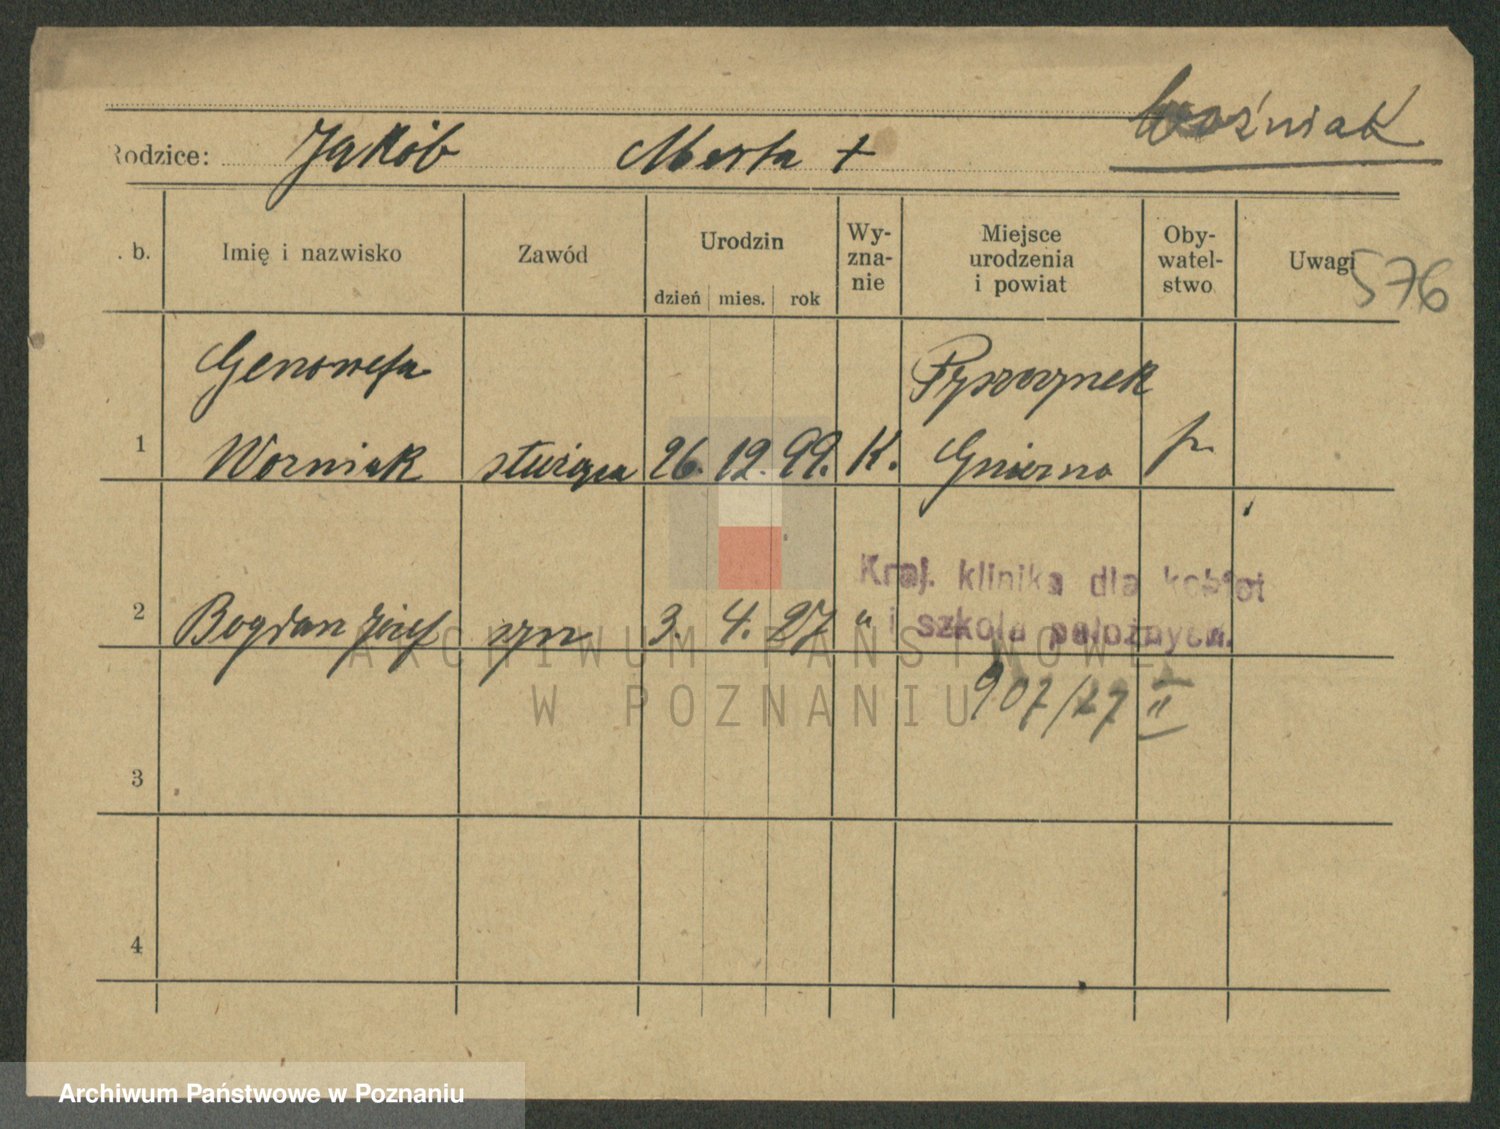 Woźniak
Rodzice: Jakób Marta +
. b. Imię i nazwisko Zawód Urodzin dzień mies. rok Wy- zna- nie Miejsce urodzenia i powiat Oby- watel- stwo Uwagi 576
Genowefa Pyszczynek
1 Wozniak służąca 26. 12. 99. K. Gniezno p.
Kraj. klinika dla kobiet
i szkoła położnych.
2 Bogdan Józef syn 3. 4. 27 "
907/27 II
3
4
ARCHIWUM PAŃSTWOWE
W POZNANIU
Archiwum Państwowe w Poznaniu